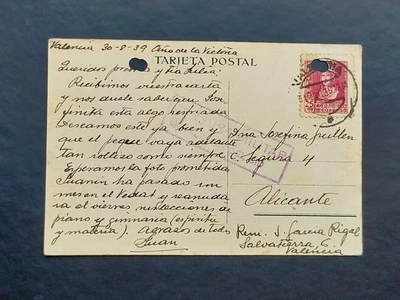 Valencia 30-8-39 Año de la Victoria
TARJETA POSTAL
Queridos primos y tia Julia:
Recibimos vuestra carta
y nos duele saber que Jose
finita esta algo resfriada
Deseamos esté ya bien y
que el peque vaya adelante
tan rollizo como siempre
Esperamos la foto prometida
Juanin ha pasado un
mes en el Vedat y reanuda
rá el viernes sus lecciones de
piano y gimnasia (espíritu
y materia). Abrazos de todos
Juan
VALENCIA
MILITAR
Dna Josefina Guillen
C. Segura 4
Alicante
Rem. J. Garcia Rigal
Salvatierra, 6
Valencia